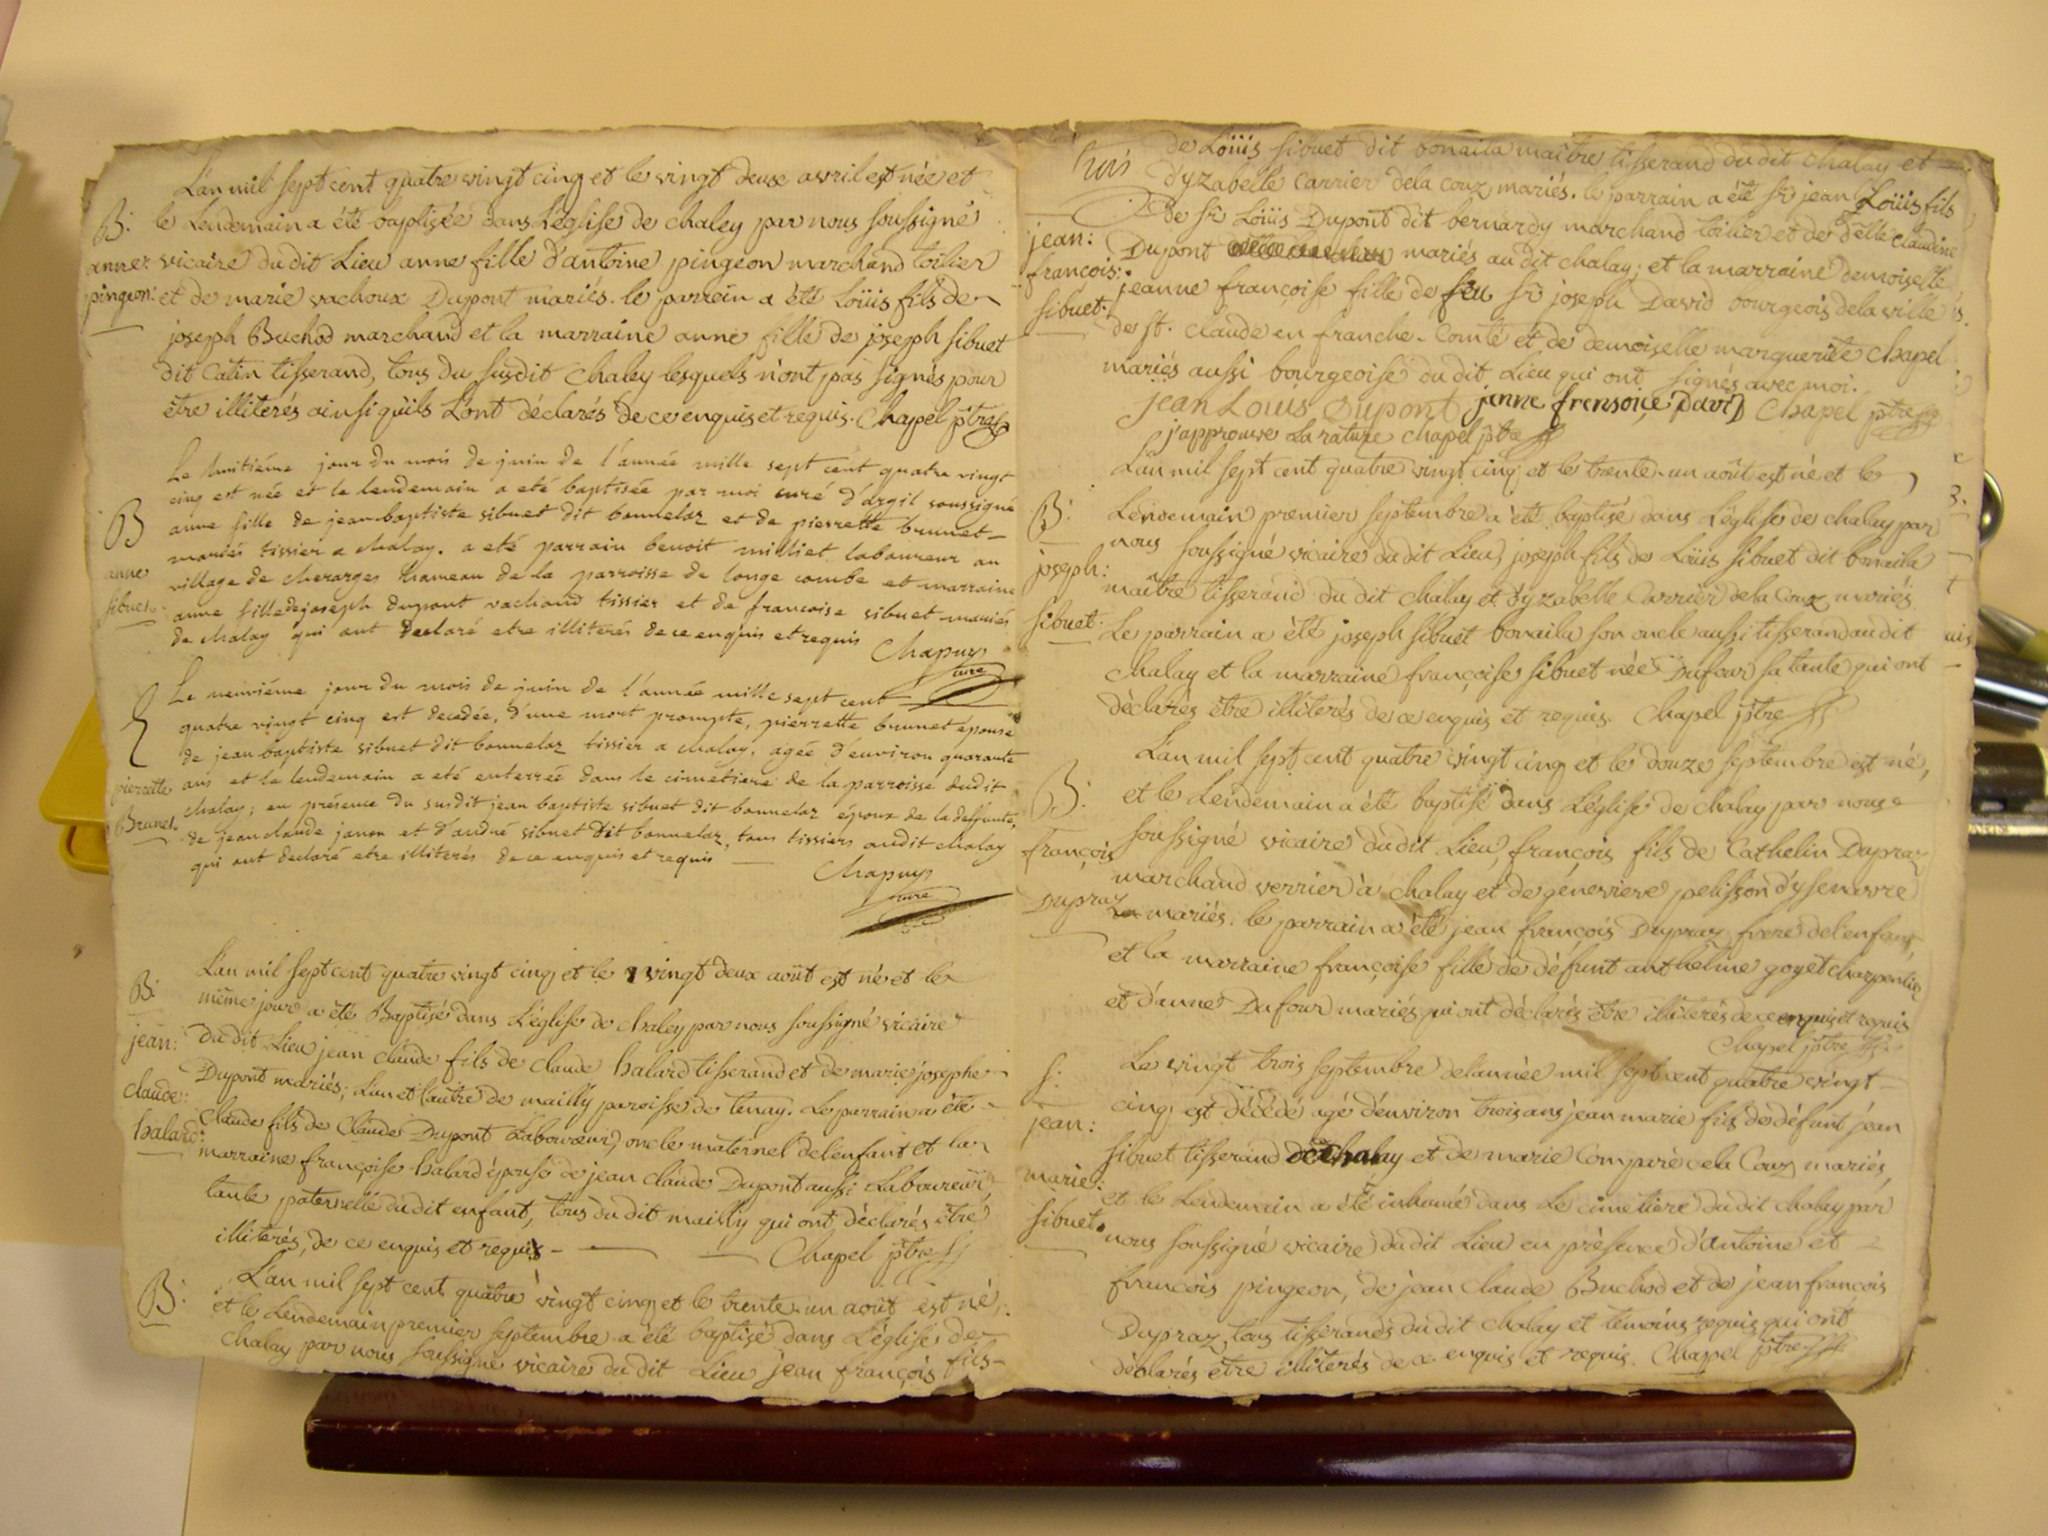 L'an mil sept cent quatre vingt cinq et le vingt deux avril est née et
B: le Lendemain a été baptisée dans l'église de chaley par nous soussigné
anne: vicaire du dit Lieu anne fille d'antoine pingeon marchand toilier
pingeon: et de marie vachoux Dupont mariés. le parrein a été Loüis fils de
joseph Buchod marchand et la marraine anne fille de joseph sibuet
dit Catin tisserand, tous du susdit Chaley lesquels n'ont pas signés pour
être illiterés ainsi qu'ils L'ont déclarés de ce enquis et requis. Chapel ptre
Le huitiéme jour du mois de juin de l'année mille sept cent quatre vingt
cinq est née et le lendemain a eté baptisée par moi curé d'argil soussigné
B anne fille de jean baptiste sibuet dit bonnelaz et de pierrette brunet
mariés tissier a chalay. a eté parrain benoit milliet laboureur au
anne village de cherarges hameau de la parroisse de longe combe et marraine
sibuet anne fille de joseph dupont vachoud tissier et de francoise sibuet mariés
de chalay qui ont declaré etre illiterés de ce enquis et requis
Chapuy
curé
Le neuviéme jour du mois de juin de l'année mille sept cent
quatre vingt cinq est decedée, d'une mort prompte, pierrette brunet epouse
de jean baptiste sibuet dit bonnelaz tissier a chalay, agée d'environ quarante
pierrette ans et le lendemain a eté enterrée dans le cimetiere de la parroisse dudit
Brunet chalay; en présence du susdit jean baptiste sibuet dit bonnelaz époux de la deffunte,
de jean claude janon et d'andré sibuet dit bonnelaz, tous tissiers audit chalay
qui ont declaré etre illiterés de ce enquis et requis
Chapuy
curé
L'an mil sept cent quatre vingt cinq et le vingt deux août est né et le
B: même jour a été Baptisé dans L'église de chaley par nous soussigné vicaire
jean: du dit Lieu jean claude fils de claude halard tisserand et de marie josephe
claude: Dupont mariés; L'un et l'autre de mailly paroisse de tenay. Le parrain a été
halard: Claude fils de Claude Dupont Laboureur, oncle maternel de l'enfant et la
marraine françoise halard épouse de jean claude Dupont aussi Laboureur
tante paternelle du dit enfant, tous du dit mailly qui ont déclarés être
illiterés, de ce enquis et requis - Chapel ptre
B: L'an mil sept cent quatre vingt cinq et le trente-un août est né,
et le Lendemain premier septembre a été baptisé dans L'église de
chalay par nous soussigné vicaire du dit Lieu jean françois fils
trois
de Loüis sibuet dit bonaila maître tisserand du dit chalay et
d'yzabelle Carrier de la couz mariés. le parrain a été sr jean Loüis fils
de sr Loüis Dupont dit bernardy marchand toilier et de delle claudine
jean: Dupont mariés au dit chalay; et la marraine demoiselle
françois: jeanne françoise fille de feu sr joseph David bourgeois de la ville
sibuet. de st. Claude en franche-Comté et de demoiselle marguerite Chapel
mariés aussi bourgeoise du dit Lieu qui ont signés avec moi.
jean Louis Dupont janne fransoiçe Davi Chapel ptre
j'approuve La rature chapel ptre
L'an mil sept cent quatre vingt cinq et le trente-un août est né et le
B: Lendemain premier septembre a été baptisé dans L'église de chalay par
nous soussigné vicaire du dit Lieu, joseph fils de Loüis sibuet dit bonaila
joseph: maître tisserand du dit chalay et d'yzabelle Carrier de la Couz mariés
sibuet. Le parrain a été joseph sibuet bonaila son oncle aussi tisserand au dit
chalay et la marraine françoise sibuet née Dufour sa tante qui ont
déclarés être illiterés de ce enquis et requis. Chapel ptre
L'an mil sept cent quatre vingt cinq et le douze septembre est né,
B: et le Lendemain a été baptisé dans L'église de chalay par nous
soussigné vicaire du dit Lieu, françois fils de Cathelin Dupraz
françois marchand verrier à chalay et de génevieve pelisson d'ysenavre
Dupraz mariés. le parrain a été jean françois Dupraz frere de l'enfant,
et la marraine françoise fille de défunt anthelme goyet charpentier
et d'anne Dufour mariés qui ont déclarés être illiterés de ce enquis et requis
Chapel ptre
S: Le vingt trois septembre de l'année mil sept cent quatre vingt
cinq est décédé agé d'environ trois ans jean marie fils de défunt jean
jean: sibuet tisserand de Chalay et de marie Comparé de la Couz mariés,
marie: et le Lendemain a été inhumé dans le cimetiere du dit chalay par
sibuet. nous soussigné vicaire du dit Lieu en présence d'antoine et
françois pingeon, de jean claude Buchod et de jean françois
Dupraz, tous tisserands du dit chalay et témoins requis qui ont
déclarés être illiterés de ce enquis et requis. Chapel ptre